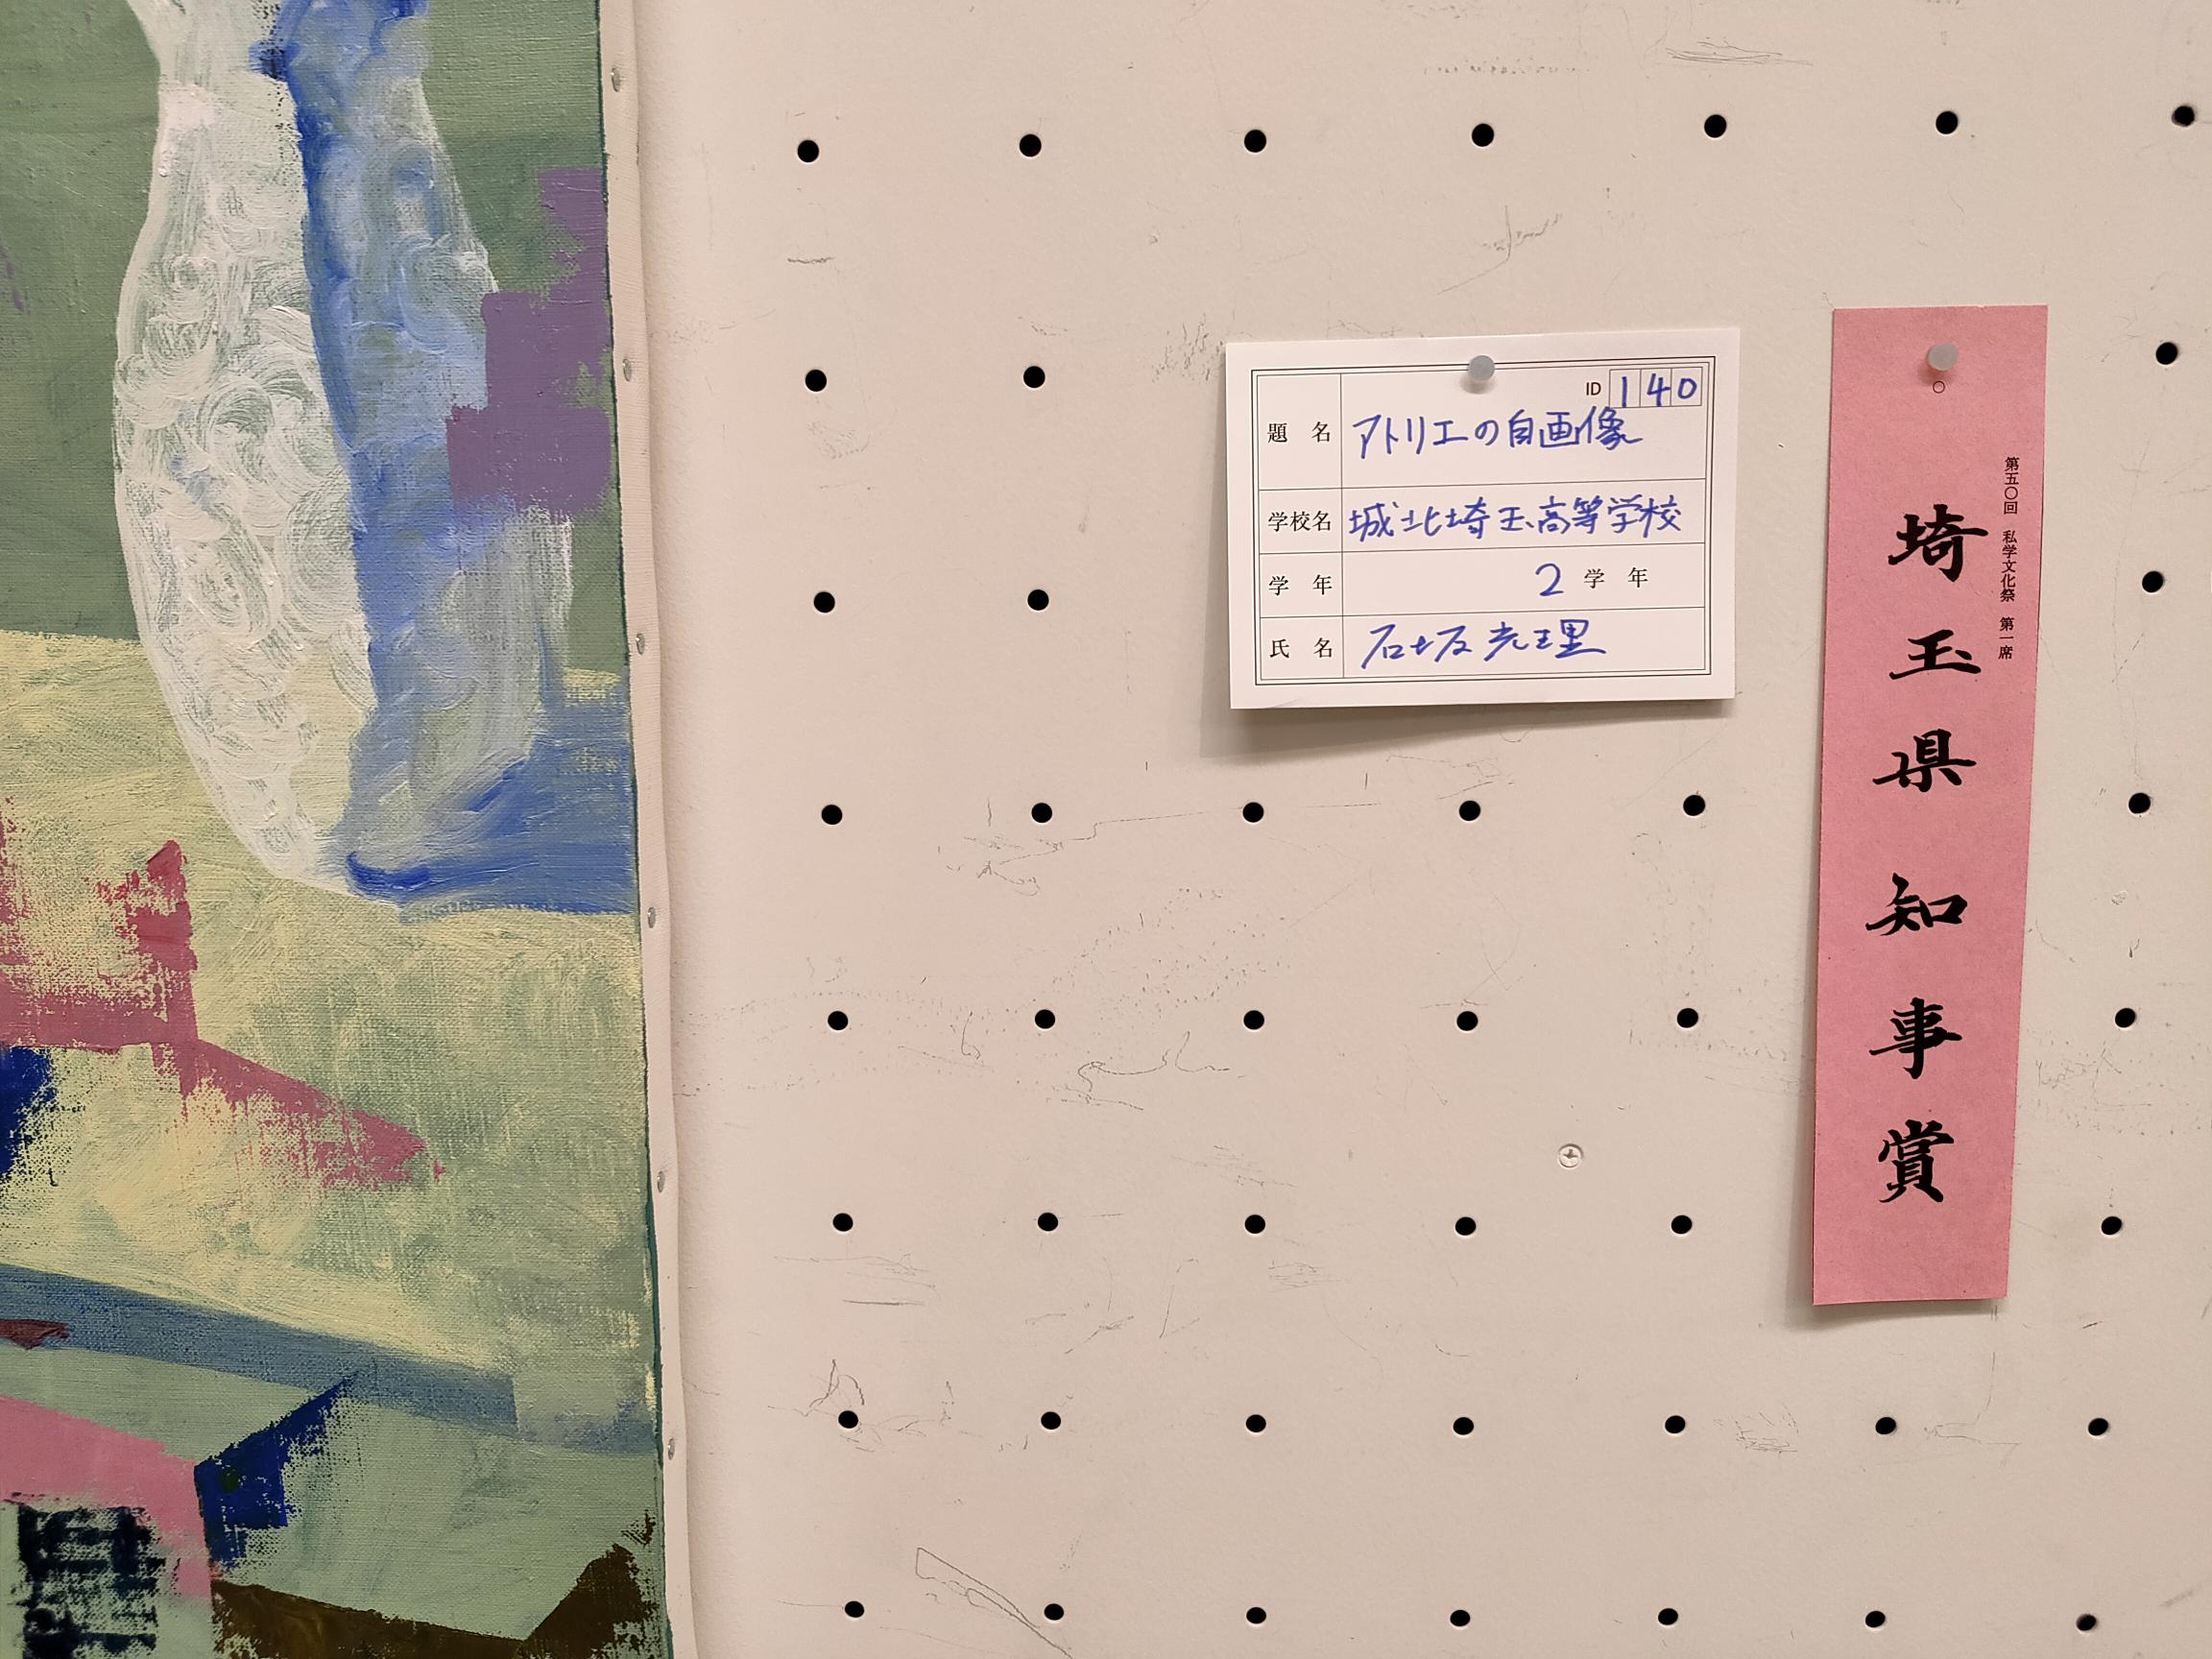 ID 140
題 名 アトリエの自画像
学校名 城北埼玉高等学校
学 年 2 学 年
氏 名 石坂光理
第五〇回 私学文化祭 第一席
埼玉県知事賞